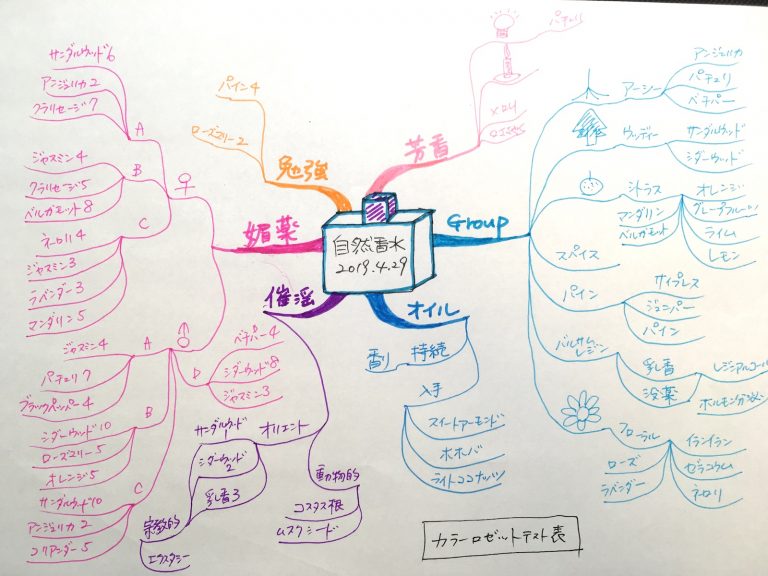 自然香水
2019.4.29
勉強
パイン4
ローズマリー2
芳香
パチュリ
メロリ
媚薬
♀
A
サンダルウッド6
アンジェリカ2
クラリセージ7
B
ジャスミン4
クラリセージ5
ベルガモット8
C
ネーロリ4
ジャスミン3
ラベンダー3
マンダリン5
♂
A
ジャスミン4
パチュリ7
ブラックペッパー4
B
シダーウッド10
ローズマリー5
オレンジ5
C
サンダルウッド10
アンジェリカ2
コリアンダー5
D
ベチバー4
シダーウッド8
ジャスミン3
催淫
オリエント
サンダルウッド1
シダーウッド2
乳香3
宗教的
エクスタシー
動物的
コスタス根
ムスクシード
オイル
香り 持続
入手
スイートアーモンド
ホホバ
ライトココナッツ
Group
アーシー
アンジェリカ
パチュリ
ベチバー
ウッディー
サンダルウッド
シダーウッド
シトラス
マンダリン
ベルガモット
オレンジ
グレープフルーツ
ライム
レモン
スパイス
パイン
サイプレス
ジュニパー
パイン
バルサム
レジン
乳香
没薬
レジンアルコール
ホルモン分泌
フローラル
ローズ
ラベンダー
イランイラン
ゼラニウム
ネロリ
カラーロゼットテスト表